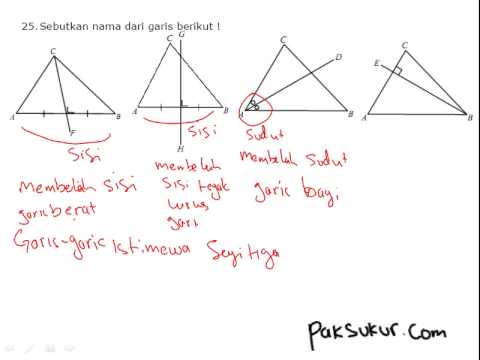 25. Sebutkan nama dari garis berikut !
C
A
B
F
G
C
A
B
H
C
D
A
B
C
E
A
B
sisi
sisi
sudut
Membelah sisi
garis berat
membelah
sisi tegak
lurus
membelah sudut
garis bagi
Garis-garis istimewa segitiga
paksukur.com